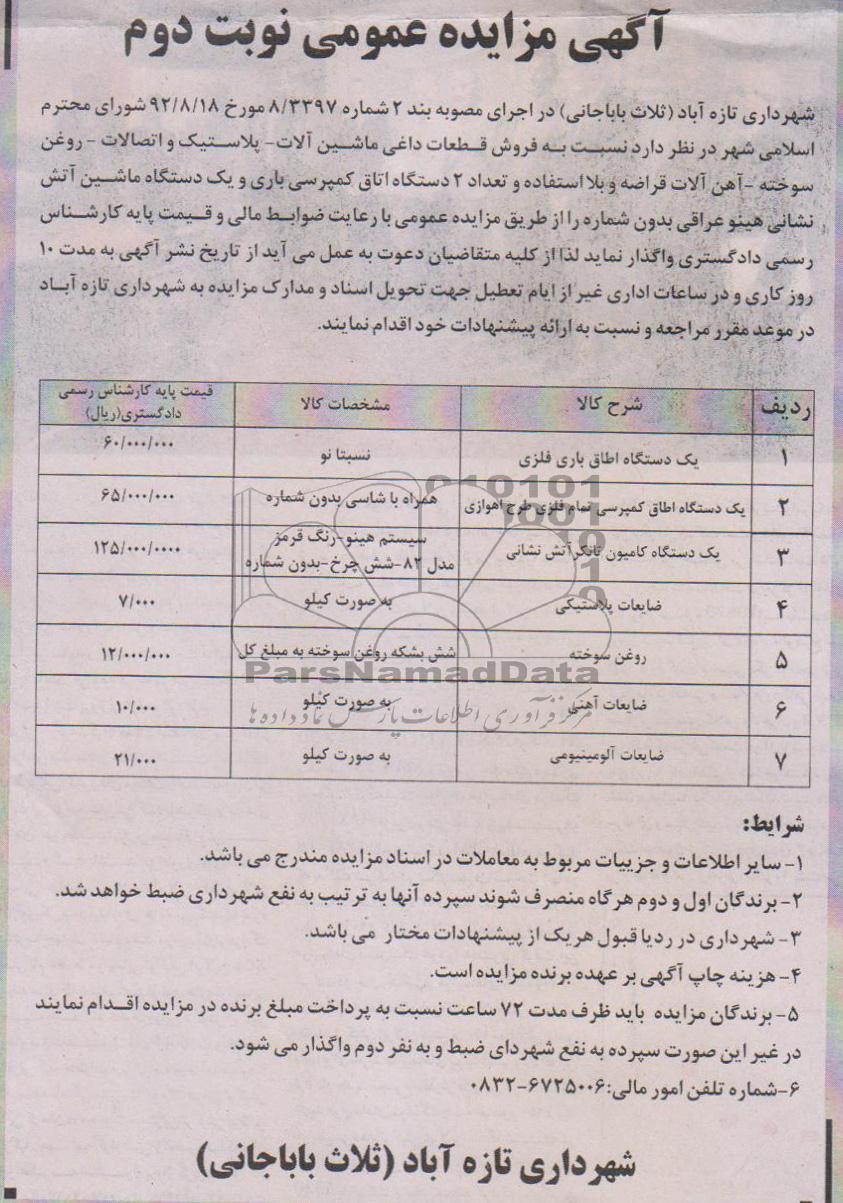 آگهی مزایده عمومی نوبت دوم
شهرداری تازه آباد (ثلاث باباجانی) در اجرای مصوبه بند ۲ شماره ۸/۳۳۹۷ مورخ ۹۲/۸/۱۸ شورای محترم
اسلامی شهر در نظر دارد نسبت به فروش قطعات داغی ماشین آلات- پلاستیک و اتصالات - روغن
سوخته -آهن آلات قراضه و بلا استفاده و تعداد ۲ دستگاه اتاق کمپرسی باری و یک دستگاه ماشین آتش
نشانی هینو عراقی بدون شماره را از طریق مزایده عمومی با رعایت ضوابط مالی و قیمت پایه کارشناس
رسمی دادگستری واگذار نماید لذا از کلیه متقاضیان دعوت به عمل می آید از تاریخ نشر آگهی به مدت ۱۰
روز کاری و در ساعات اداری غیر از ایام تعطیل جهت تحویل اسناد و مدارک مزایده به شهرداری تازه آباد
در موعد مقرر مراجعه و نسبت به ارائه پیشنهادات خود اقدام نمایند.
ردیف شرح کالا مشخصات کالا قیمت پایه کارشناس رسمی
دادگستری(ریال)
۱ یک دستگاه اطاق باری فلزی نسبتا نو ۶۰/۰۰۰/۰۰۰
۲ یک دستگاه اطاق کمپرسی تمام فلزی طرح اهوازی همراه با شاسی بدون شماره ۶۵/۰۰۰/۰۰۰
۳ یک دستگاه کامیون تانکر آتش نشانی سیستم هینو-رنگ قرمز ۱۲۵/۰۰۰/۰۰۰۰
مدل ۸۲-شش چرخ-بدون شماره
۴ ضایعات پلاستیکی به صورت کیلو ۷/۰۰۰
۵ روغن سوخته شش بشکه روغن سوخته به مبلغ کل ۱۲/۰۰۰/۰۰۰
۶ ضایعات آهنی به صورت کیلو ۱۰/۰۰۰
۷ ضایعات آلومینیومی به صورت کیلو ۲۱/۰۰۰
ParsNamadData
مرکز فرآوری اطلاعات پارس نماد داده ها
شرایط:
۱- سایر اطلاعات و جزییات مربوط به معاملات در اسناد مزایده مندرج می باشد.
۲- برندگان اول و دوم هرگاه منصرف شوند سپرده آنها به ترتیب به نفع شهرداری ضبط خواهد شد.
۳- شهرداری در رد یا قبول هر یک از پیشنهادات مختار می باشد.
۴- هزینه چاپ آگهی بر عهده برنده مزایده است.
۵- برندگان مزایده باید ظرف مدت ۷۲ ساعت نسبت به پرداخت مبلغ برنده در مزایده اقدام نمایند
در غیر این صورت سپرده به نفع شهردای ضبط و به نفر دوم واگذار می شود.
۶-شماره تلفن امور مالی:۶۷۲۵۰۰۶-۰۸۳۲
شهرداری تازه آباد (ثلاث باباجانی)